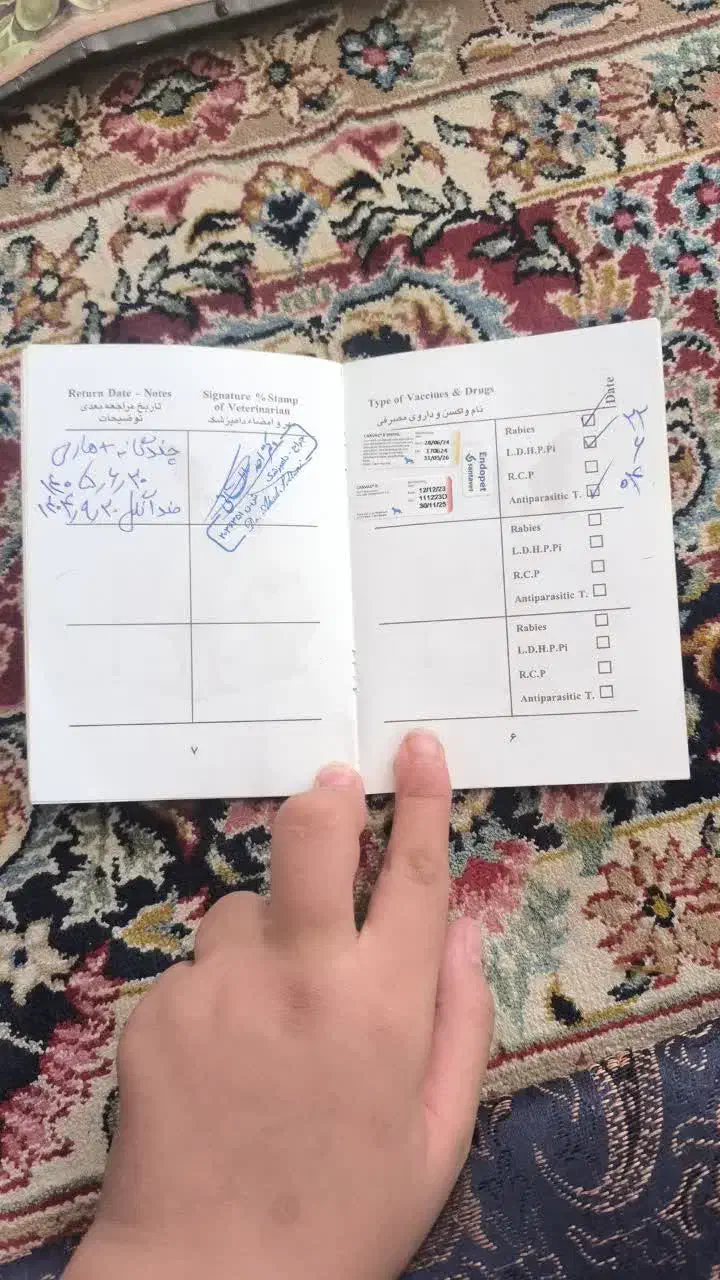 Return Date - Notes
تاریخ مراجعه بعدی
توضیحات
Signature % Stamp
of Veterinarian
مهر و امضاء دامپزشک
چندگانه + هاری
۱۴۰۵٫۶٫۲۰
ضد انگل ۱۴۰۴٫۹٫۲۰
۷
Type of Vaccines & Drugs
نام واکسن و داروی مصرفی
Date
28/06/24
31/05/26
12/12/23
111223D
30/11/25
Endopet
Rabies
L.D.H.P.Pi
R.C.P
Antiparasitic T.
Rabies
L.D.H.P.Pi
R.C.P
Antiparasitic T.
Rabies
L.D.H.P.Pi
R.C.P
Antiparasitic T.
۶